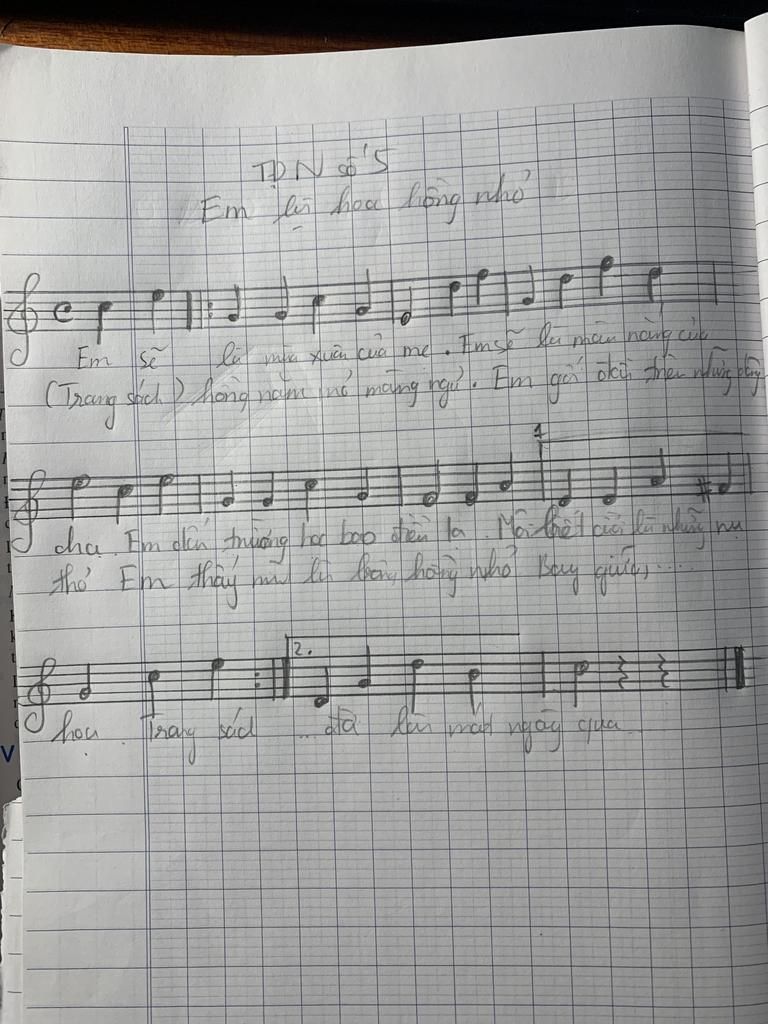 TĐN số 5
Em là hoa hồng nhỏ
Em sẽ là mùa xuân của mẹ. Em sẽ là màu nắng của
(Trang sách) hồng nằm mơ màng ngủ. Em gối đầu trên những
cha. Em đến trường học bao điều lạ. Môi là những nụ
thơ Em thấy mình là hoa hồng nhỏ Bay giữa,....
1
2.
hoa Trang sách ... đã làm mát ngày qua